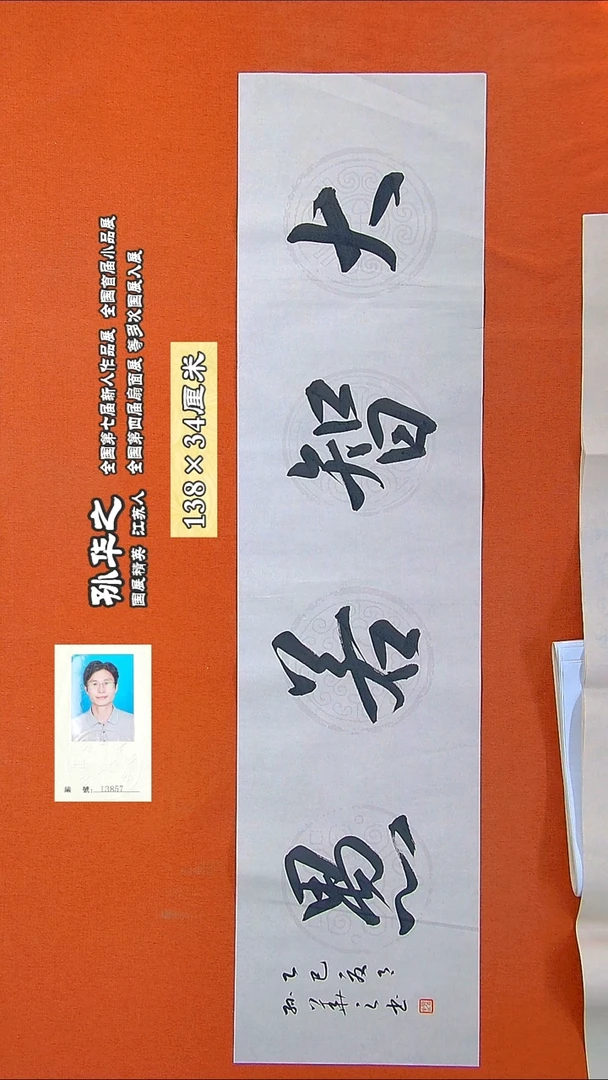 孙华之
国展精英 江苏人
全国第七届新人作品展 全国首届小品展
全国第四届扇面展等多次国展入展
138×34厘米
編 號：13857
大智若愚
乙巳夏月
孙華之书